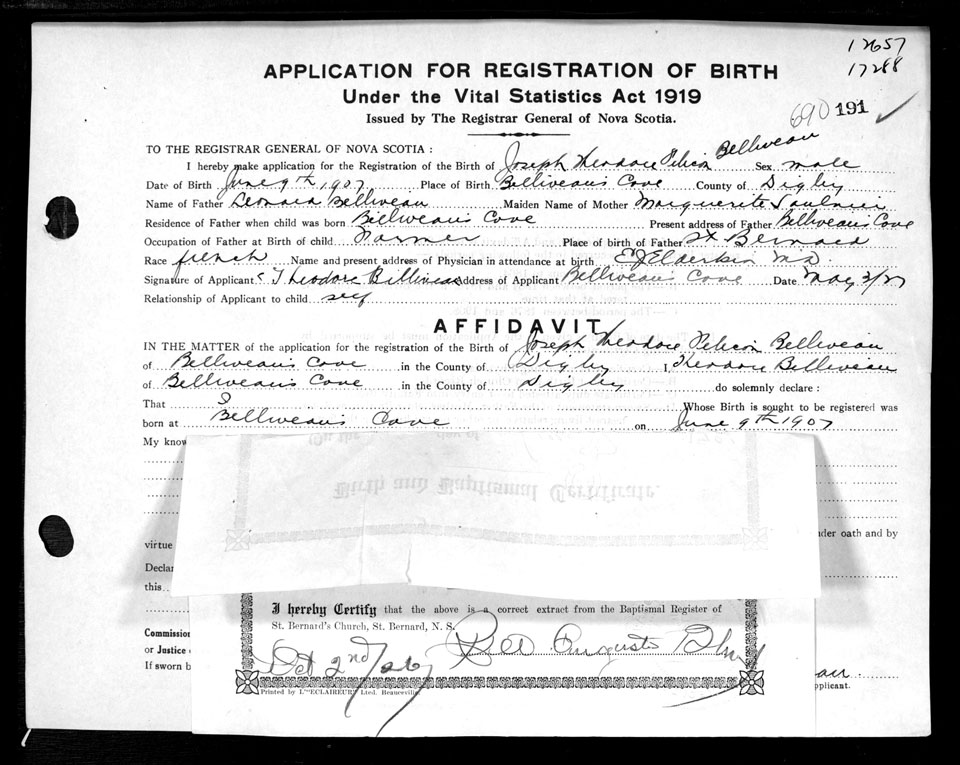 12657
17288
APPLICATION FOR REGISTRATION OF BIRTH
Under the Vital Statistics Act 1919
690 191 ✓
Issued by The Registrar General of Nova Scotia.
TO THE REGISTRAR GENERAL OF NOVA SCOTIA :
I hereby make application for the Registration of the Birth of Joseph Theodore Belliveau Sex male
Date of Birth June 9th 1907 Place of Birth Belliveau's Cove County of Digby
Name of Father Leonard Belliveau Maiden Name of Mother Marguerite Saulnier
Residence of Father when child was born Belliveau's Cove Present address of Father Belliveau's Cove
Occupation of Father at Birth of child Farmer Place of birth of Father St Bernard
Race french Name and present address of Physician in attendance at birth E J Elderkin M.D.
Signature of Applicant Theodore Belliveau Address of Applicant Belliveau's Cove Date May 3/27
Relationship of Applicant to child self
AFFIDAVIT
IN THE MATTER of the application for the registration of the Birth of Joseph Theodore Belliveau
of Belliveau's Cove in the County of Digby I, Theodore Belliveau
of Belliveau's Cove in the County of Digby do solemnly declare :
That I Whose Birth is sought to be registered was
born at Belliveau's Cove on June 9th 1907
My know
Birth and Baptismal Certificate.
nder oath and by
virtue
Declar
this
I hereby Certify that the above is a correct extract from the Baptismal Register of
St. Bernard's Church, St. Bernard, N. S.
Commission
or Justice
Oct 2nd/26
If sworn b
pplicant.
Printed by L'"ECLAIREUR" Lted. Beauceville